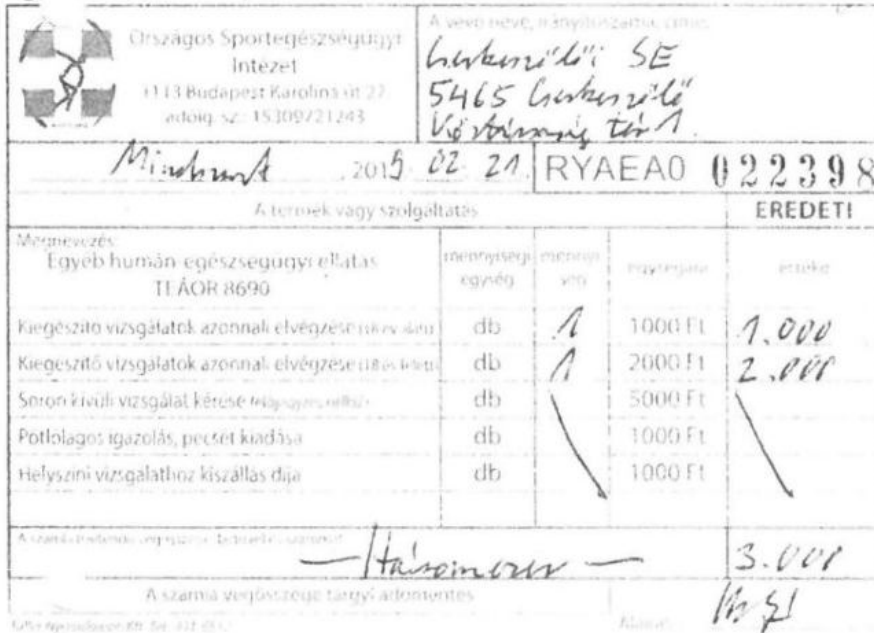 Országos Sportegészségügyi
Intézet
1113 Budapest Karolina út 27.
adóig. sz.: 15309721243
A vevő neve, irányítószáma, címe:
Cserkeszőlői SE
5465 Cserkeszőlő
tér 1.
2015 02 21.
RYAEA0 022398
A termék vagy szolgáltatás
EREDETI
Megnevezés:
Egyéb humán-egészségügyi ellátás
TEÁOR 8690
mennyiségi egység
mennyiség
egységára
értéke
Kiegészítő vizsgálatok azonnali elvégzése db 1 1000 Ft 1.000
Kiegészítő vizsgálatok azonnali elvégzése db 1 2000 Ft 2.000
Soron kívüli vizsgálat kérése db 5000 Ft
Pótlólagos igazolás, pecsét kiadása db 1000 Ft
Helyszíni vizsgálathoz kiszállás díja db 1000 Ft
— Háromezer — 3.000
A számla végösszege tárgyi adómentes